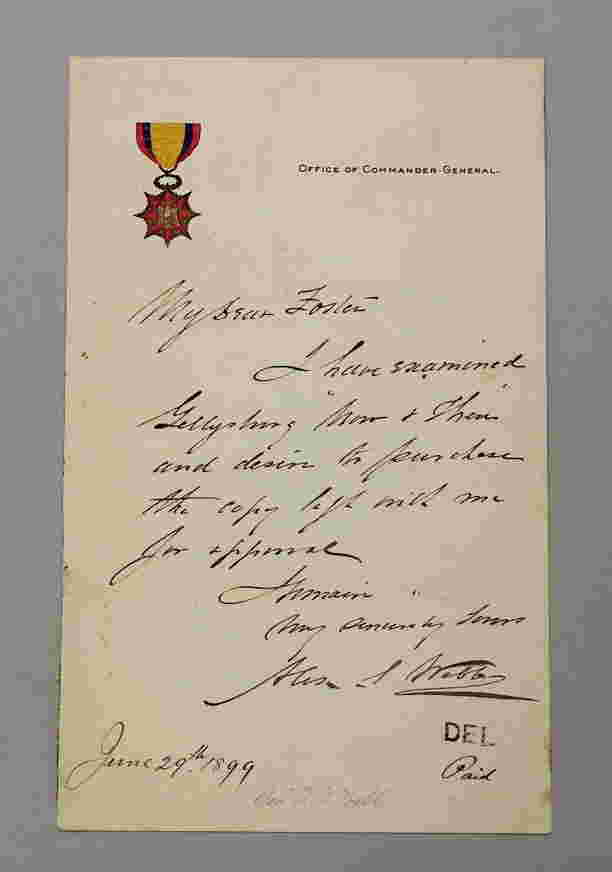 OFFICE OF COMMANDER-GENERAL.
My Dear Foster
I have examined
Gettysburg "Now & Then"
and desire to purchase
the copy left with me
for approval
I remain
very sincerely Yours
Alex S Webb
DEL
June 29th 1899
Paid